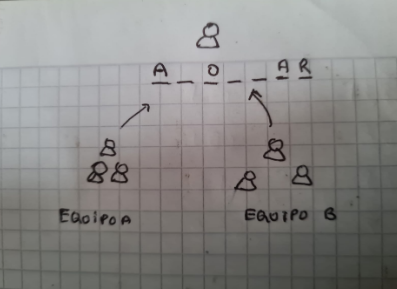 A _ O _ _ A R
EQUIPO A
EQUIPO B